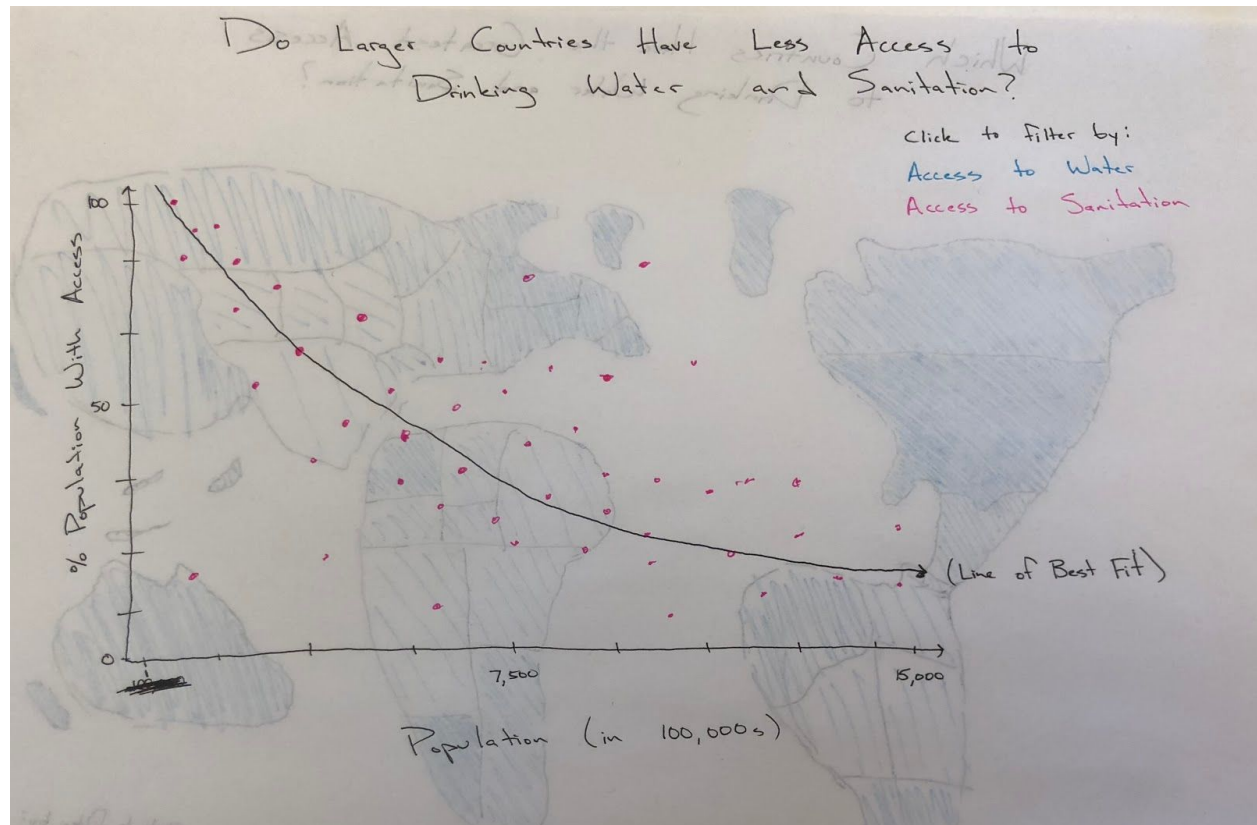 Do Larger Countries Have Less Access to
Drinking Water and Sanitation?
Click to filter by:
Access to Water
Access to Sanitation
100
% Population With Access
50
0
(Line of Best Fit)
7,500
15,000
Population (in 100,000s)